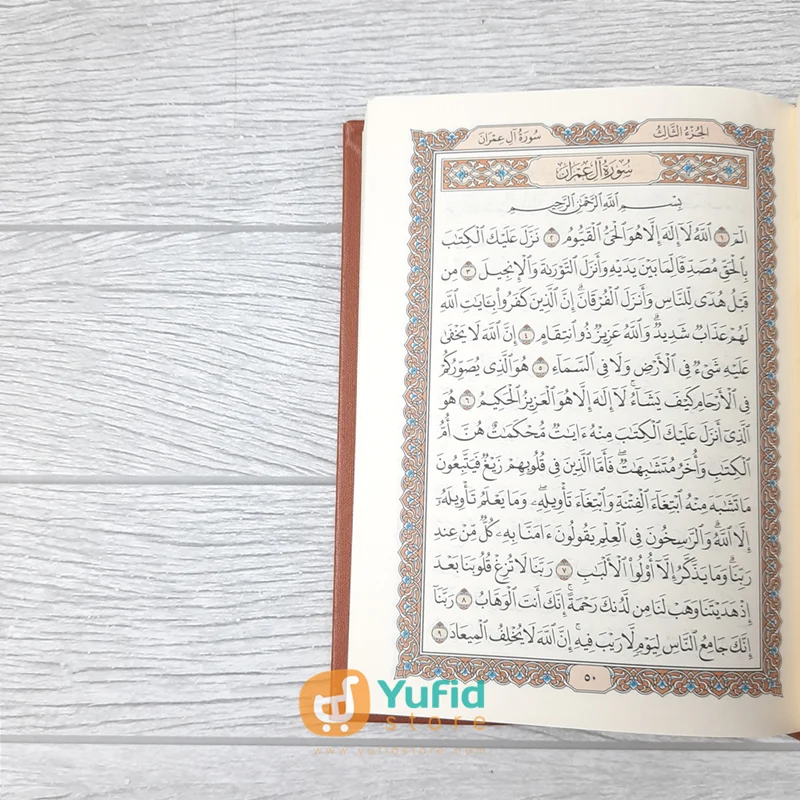 الجزء الثالث
سورة آل عمران
سُورَةُ آلِ عِمْرَانَ
بِسْمِ ٱللَّهِ ٱلرَّحْمَٰنِ ٱلرَّحِيمِ
الٓمٓ ١ ٱللَّهُ لَآ إِلَٰهَ إِلَّا هُوَ ٱلْحَىُّ ٱلْقَيُّومُ ٢ نَزَّلَ عَلَيْكَ ٱلْكِتَٰبَ
بِٱلْحَقِّ مُصَدِّقًا لِّمَا بَيْنَ يَدَيْهِ وَأَنزَلَ ٱلتَّوْرَىٰةَ وَٱلْإِنجِيلَ ٣ مِن
قَبْلُ هُدًى لِّلنَّاسِ وَأَنزَلَ ٱلْفُرْقَانَ ۗ إِنَّ ٱلَّذِينَ كَفَرُوا۟ بِـَٔايَٰتِ ٱللَّهِ
لَهُمْ عَذَابٌ شَدِيدٌ ۗ وَٱللَّهُ عَزِيزٌ ذُو ٱنتِقَامٍ ٤ إِنَّ ٱللَّهَ لَا يَخْفَىٰ
عَلَيْهِ شَىْءٌ فِى ٱلْأَرْضِ وَلَا فِى ٱلسَّمَآءِ ٥ هُوَ ٱلَّذِى يُصَوِّرُكُمْ
فِى ٱلْأَرْحَامِ كَيْفَ يَشَآءُ ۚ لَآ إِلَٰهَ إِلَّا هُوَ ٱلْعَزِيزُ ٱلْحَكِيمُ ٦ هُوَ
ٱلَّذِىٓ أَنزَلَ عَلَيْكَ ٱلْكِتَٰبَ مِنْهُ ءَايَٰتٌ مُّحْكَمَٰتٌ هُنَّ أُمُّ
ٱلْكِتَٰبِ وَأُخَرُ مُتَشَٰبِهَٰتٌ ۖ فَأَمَّا ٱلَّذِينَ فِى قُلُوبِهِمْ زَيْغٌ فَيَتَّبِعُونَ
مَا تَشَٰبَهَ مِنْهُ ٱبْتِغَآءَ ٱلْفِتْنَةِ وَٱبْتِغَآءَ تَأْوِيلِهِۦ ۗ وَمَا يَعْلَمُ تَأْوِيلَهُۥٓ
إِلَّا ٱللَّهُ ۗ وَٱلرَّٰسِخُونَ فِى ٱلْعِلْمِ يَقُولُونَ ءَامَنَّا بِهِۦ كُلٌّ مِّنْ عِندِ
رَبِّنَا ۗ وَمَا يَذَّكَّرُ إِلَّآ أُو۟لُوا۟ ٱلْأَلْبَٰبِ ٧ رَبَّنَا لَا تُزِغْ قُلُوبَنَا بَعْدَ
إِذْ هَدَيْتَنَا وَهَبْ لَنَا مِن لَّدُنكَ رَحْمَةً ۚ إِنَّكَ أَنتَ ٱلْوَهَّابُ ٨ رَبَّنَآ
إِنَّكَ جَامِعُ ٱلنَّاسِ لِيَوْمٍ لَّا رَيْبَ فِيهِ ۚ إِنَّ ٱللَّهَ لَا يُخْلِفُ ٱلْمِيعَادَ ٩
٥٠
Yufid
store
www.yufidstore.com